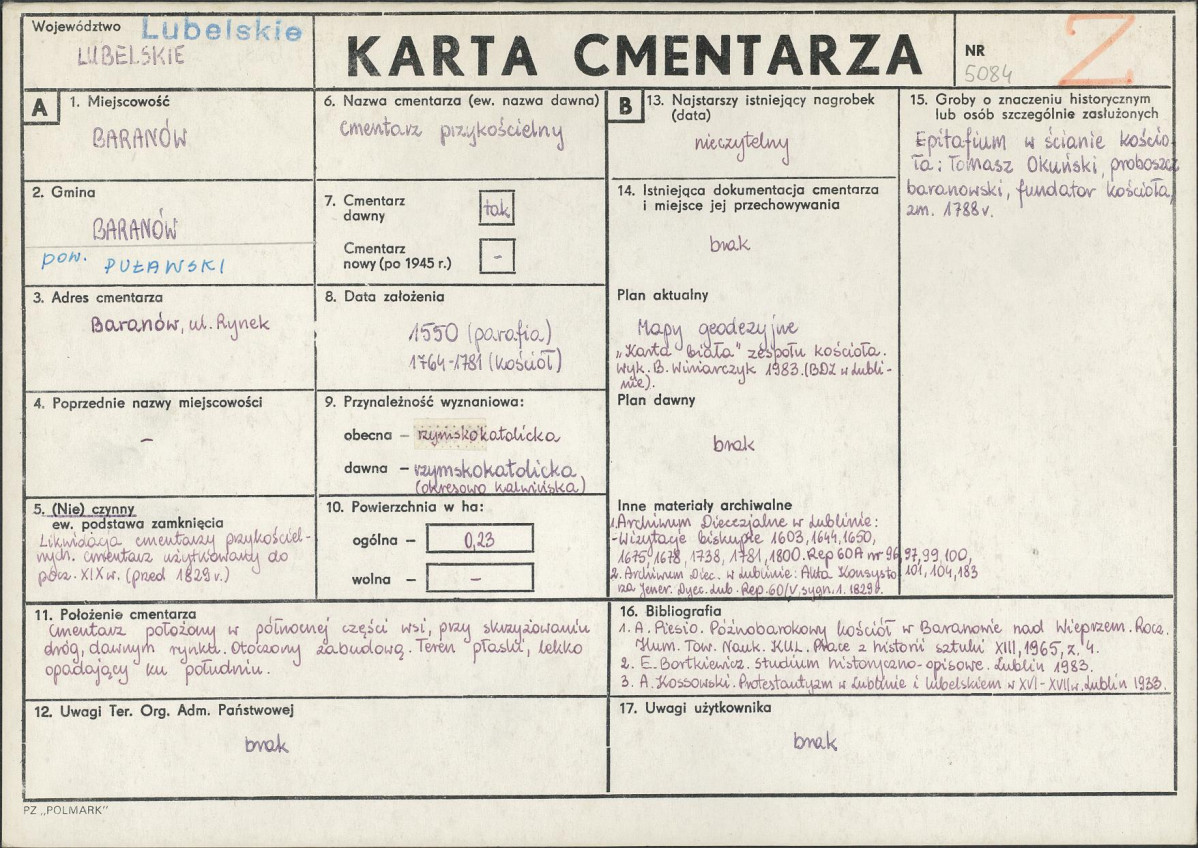 Województwo Lubelskie
LUBELSKIE
KARTA CMENTARZA
NR
5084
Z
A
1. Miejscowość
BARANÓW
2. Gmina
BARANÓW
pow. PUŁAWSKI
3. Adres cmentarza
Baranów, ul. Rynek
4. Poprzednie nazwy miejscowości
–
5. (Nie) czynny
ew. podstawa zamknięcia
Likwidacja cmentarzy przykościel-
nych. cmentarz użytkowany do
pocz. XIX w. (przed 1829 r.)
6. Nazwa cmentarza (ew. nazwa dawna)
Cmentarz przykościelny
7. Cmentarz
dawny
tak
Cmentarz
nowy (po 1945 r.)
-
8. Data założenia
1550 (parafia)
1764-1781 (kościół)
9. Przynależność wyznaniowa:
obecna – rzymskokatolicka
dawna – rzymskokatolicka
(okresowo kalwińska)
10. Powierzchnia w ha:
ogólna – 0,23
wolna – –
11. Położenie cmentarza
Cmentarz położony w północnej części wsi, przy skrzyżowaniu
dróg, dawnym rynku. Otoczony zabudową. Teren płaski, lekko
opadający ku południu.
12. Uwagi Ter. Org. Adm. Państwowej
brak
B
13. Najstarszy istniejący nagrobek
(data)
nieczytelny
14. Istniejąca dokumentacja cmentarza
i miejsce jej przechowywania
brak
Plan aktualny
Mapy geodezyjne
„Karta biała" zespołu kościoła.
wyk. B. Winiarczyk 1983. (BDZ w Lubli-
nie).
Plan dawny
brak
Inne materiały archiwalne
1. Archiwum Diecezjalne w Lublinie:
- Wizytacje biskupie 1603, 1644, 1650,
1675, 1678, 1738, 1781, 1800. Rep 60A nr 96, 97, 99, 100,
101, 104, 183
2. Archiwum Diec. w Lublinie: Akta Konsysto
rza Jener. Dyec. Lub. Rep. 60/V. sygn. 1. 1829r.
15. Groby o znaczeniu historycznym
lub osób szczególnie zasłużonych
Epitafium w ścianie kościo-
ła: Tomasz Okuński, proboszcz
baranowski, fundator kościoła,
zm. 1788 r.
16. Bibliografia
1. A. Miesio. Późnobarokowy kościół w Baranowie nad Wieprzem. Rocz.
Hum. Tow. Nauk. KUL. Prace z historii sztuki XIII, 1965, z. 4.
2. E. Bortkiewicz. Studium historyczno-opisowe. Lublin 1983.
3. A. Kossowski. Protestantyzm w Lublinie i lubelskiem w XVI-XVII w. Lublin 1933.
17. Uwagi użytkownika
brak
PZ „POLMARK"